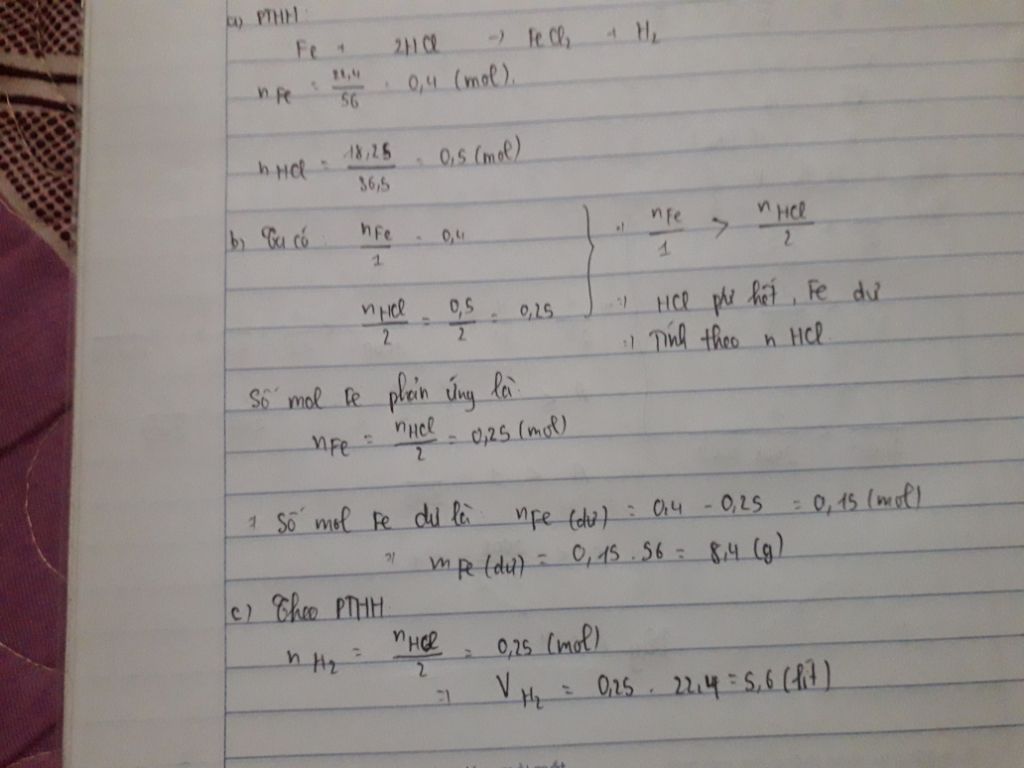 a) PTHH:
Fe + 2HCl → FeCl₂ + H₂
nFe = 22,4/56 = 0,4 (mol).
nHCl = 18,25/36,5 = 0,5 (mol)
b) Ta có nFe/1 = 0,4
nHCl/2 = 0,5/2 = 0,25
=> nFe/1 > nHCl/2
=> HCl pư hết, Fe dư
=> Tính theo n HCl
Số mol Fe phản ứng là:
nFe = nHCl/2 = 0,25 (mol)
=> Số mol Fe dư là nFe (dư) = 0,4 - 0,25 = 0,15 (mol)
=> mFe (dư) = 0,15 . 56 = 8,4 (g)
c) Theo PTHH
nH₂ = nHCl/2 = 0,25 (mol)
=> VH₂ = 0,25 . 22,4 = 5,6 (lít)